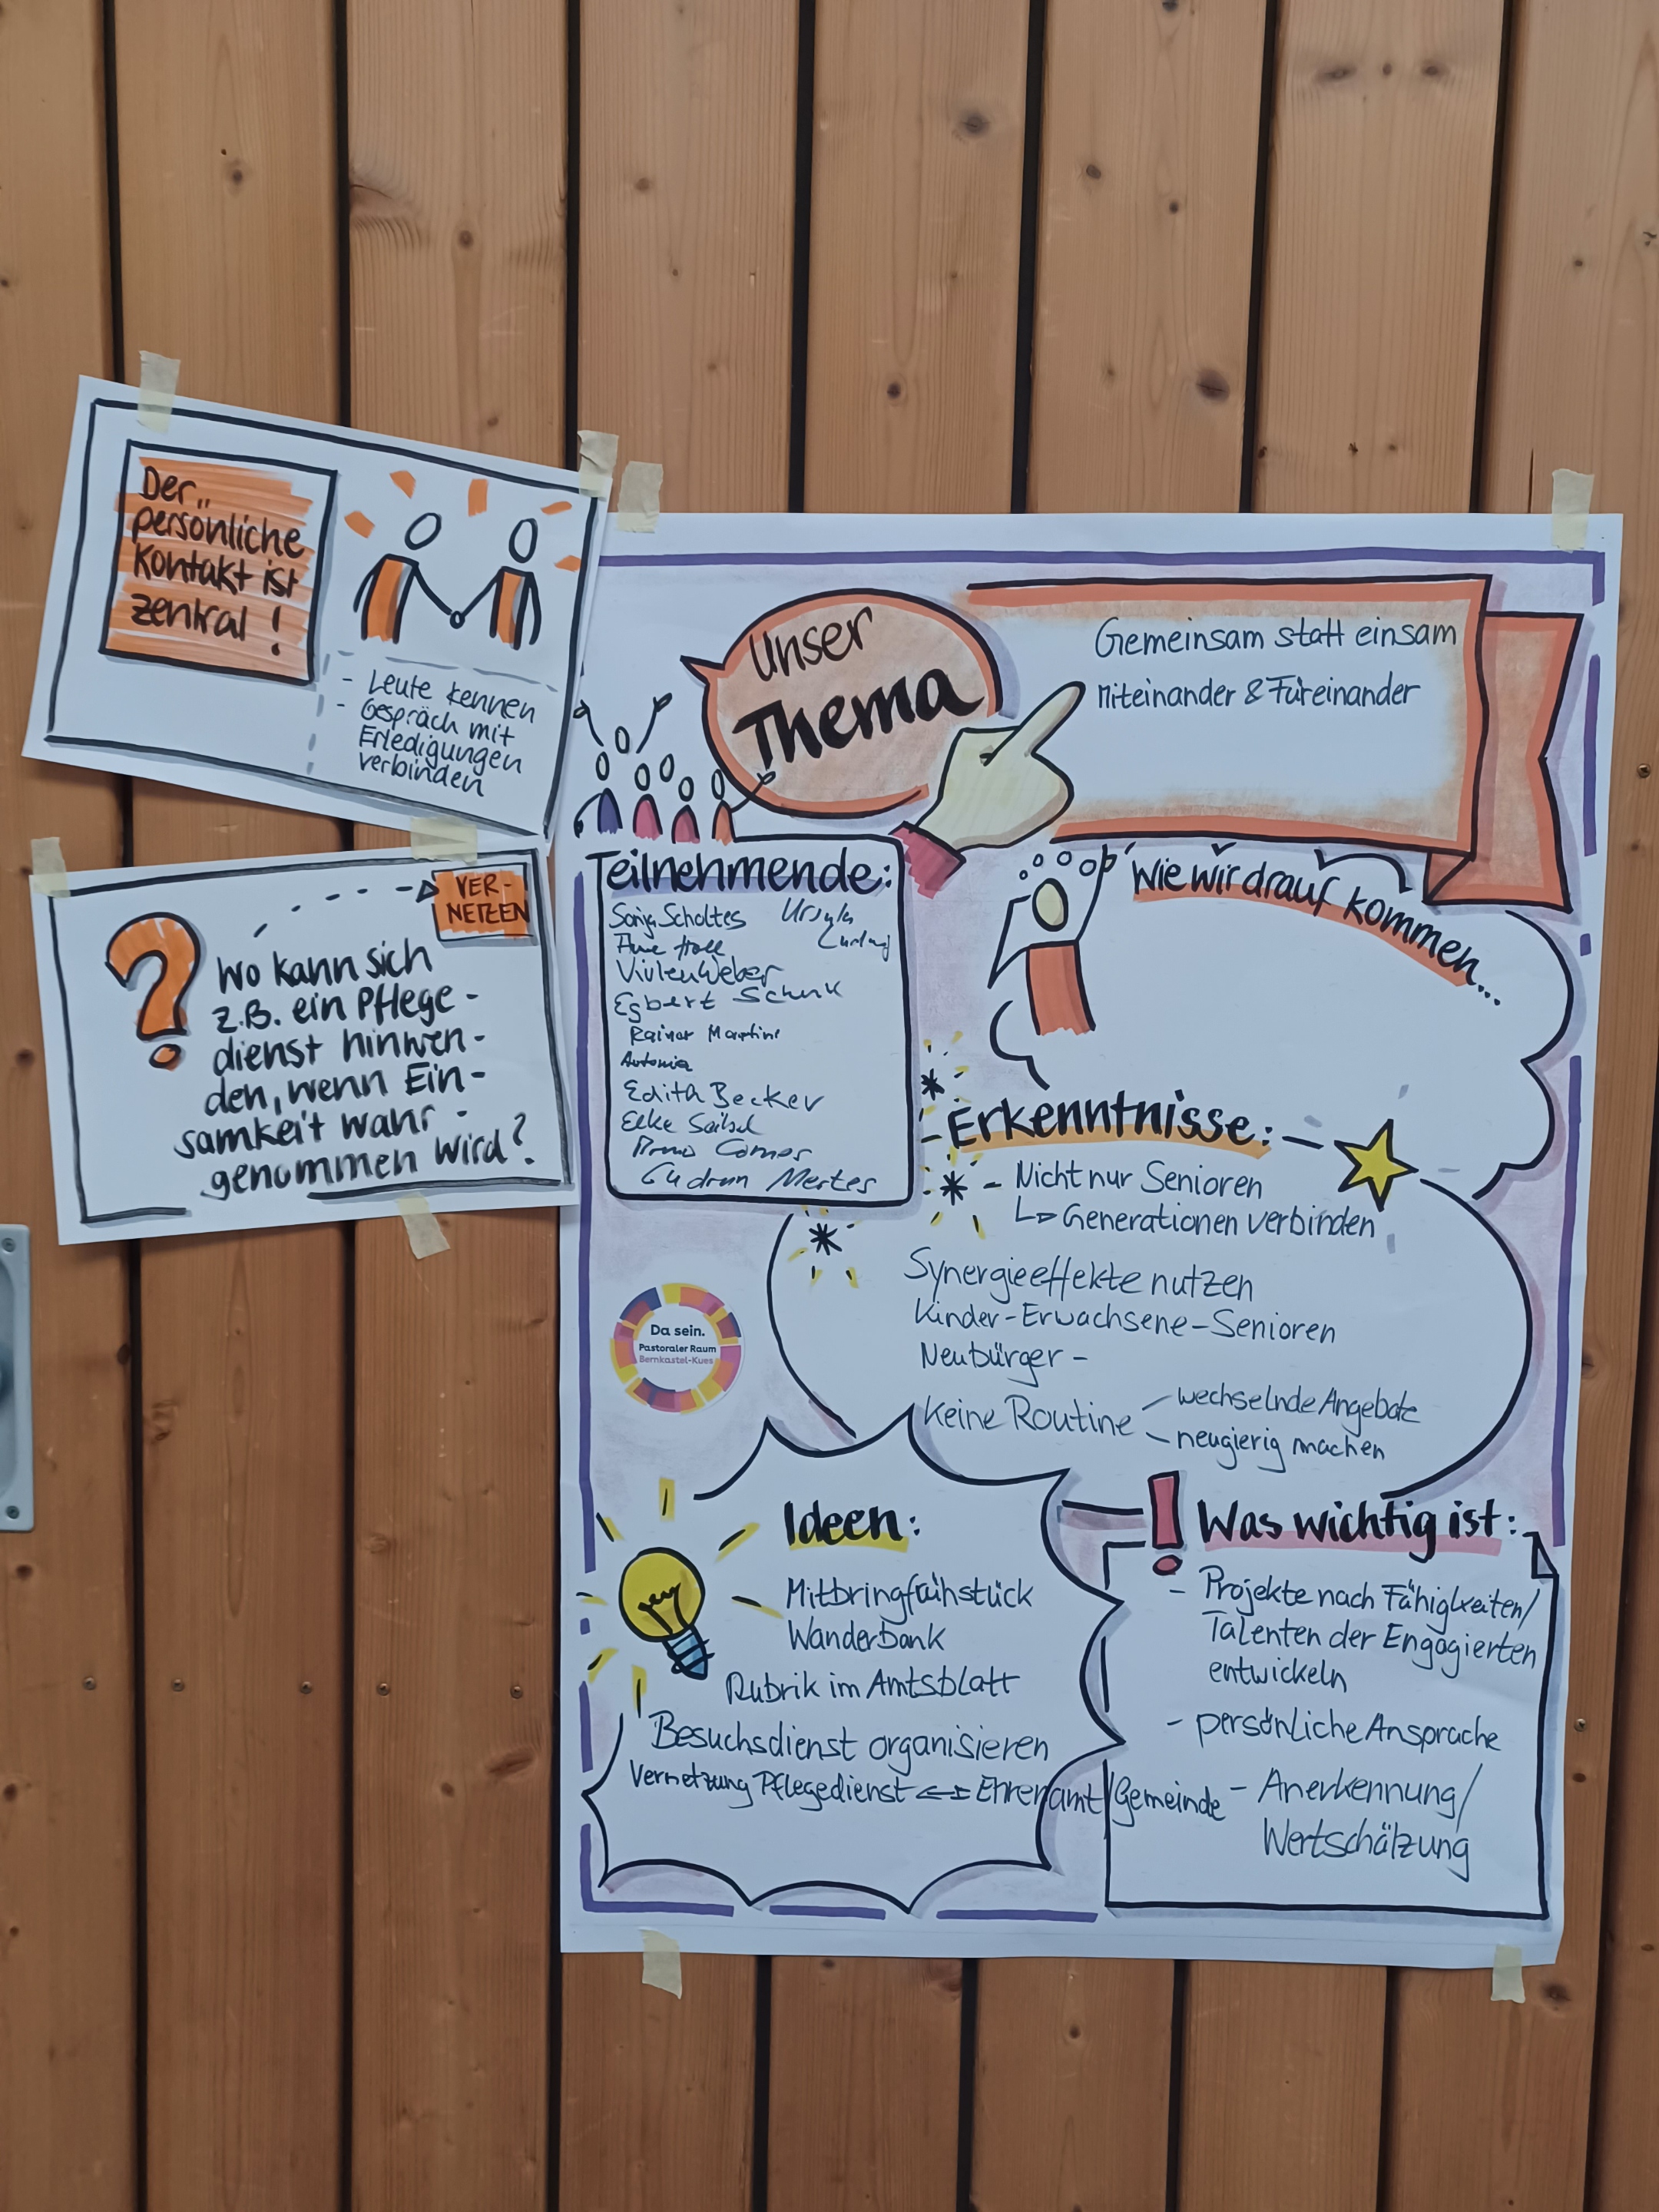 Der
persönliche
Kontakt ist
zentral!
- Leute kennen
- Gespräch mit
Erledigungen
verbinden
VER-
NETZEN
Wo kann sich
z.B. ein Pflege-
dienst hinwen-
den, wenn Ein-
samkeit wahr-
genommen wird?
Unser
Thema
Gemeinsam statt einsam
Miteinander & Füreinander
Teilnehmende:
Sonja Scholtes
Ursula
Vivien Weber
Egbert Schunk
Rainer Martini
Antonia
Edith Becker
Elke
Gudrun Mertes
Wie wir drauf kommen...
Erkenntnisse:
- Nicht nur Senioren
↳ Generationen verbinden
Synergieeffekte nutzen
Kinder-Erwachsene-Senioren
Neubürger -
Keine Routine
- wechselnde Angebote
- neugierig machen
Da sein.
Pastoraler Raum
Bernkastel-Kues
Ideen:
Mitbringfrühstück
Wanderbank
Rubrik im Amtsblatt
Besuchsdienst organisieren
Vernetzung Pflegedienst ↔ Ehrenamt/Gemeinde
! Was wichtig ist:
- Projekte nach Fähigkeiten/
Talenten der Engagierten
entwickeln
- persönliche Ansprache
- Anerkennung/
Wertschätzung